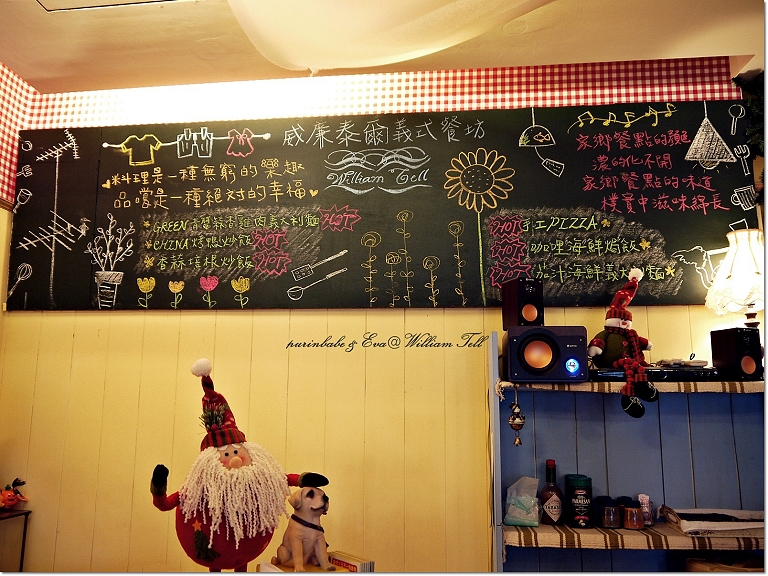 威廉泰爾義式餐坊
William Tell
料理是一種無窮的樂趣
品嚐是一種絕對的幸福
GREEN青醬蒜香雞肉義大利麵HOT
CHINA烤鴨炒飯HOT
香蒜培根炒飯HOT
家鄉餐點的雞
濃的化不開
家鄉餐點的味道
樸實中滋味綿長
HOT手工PIZZA
HOT咖哩海鮮焗飯
HOT茄汁海鮮義大利麵
purinbabe & Eva@William Tell
TABASCO
PARMESAN